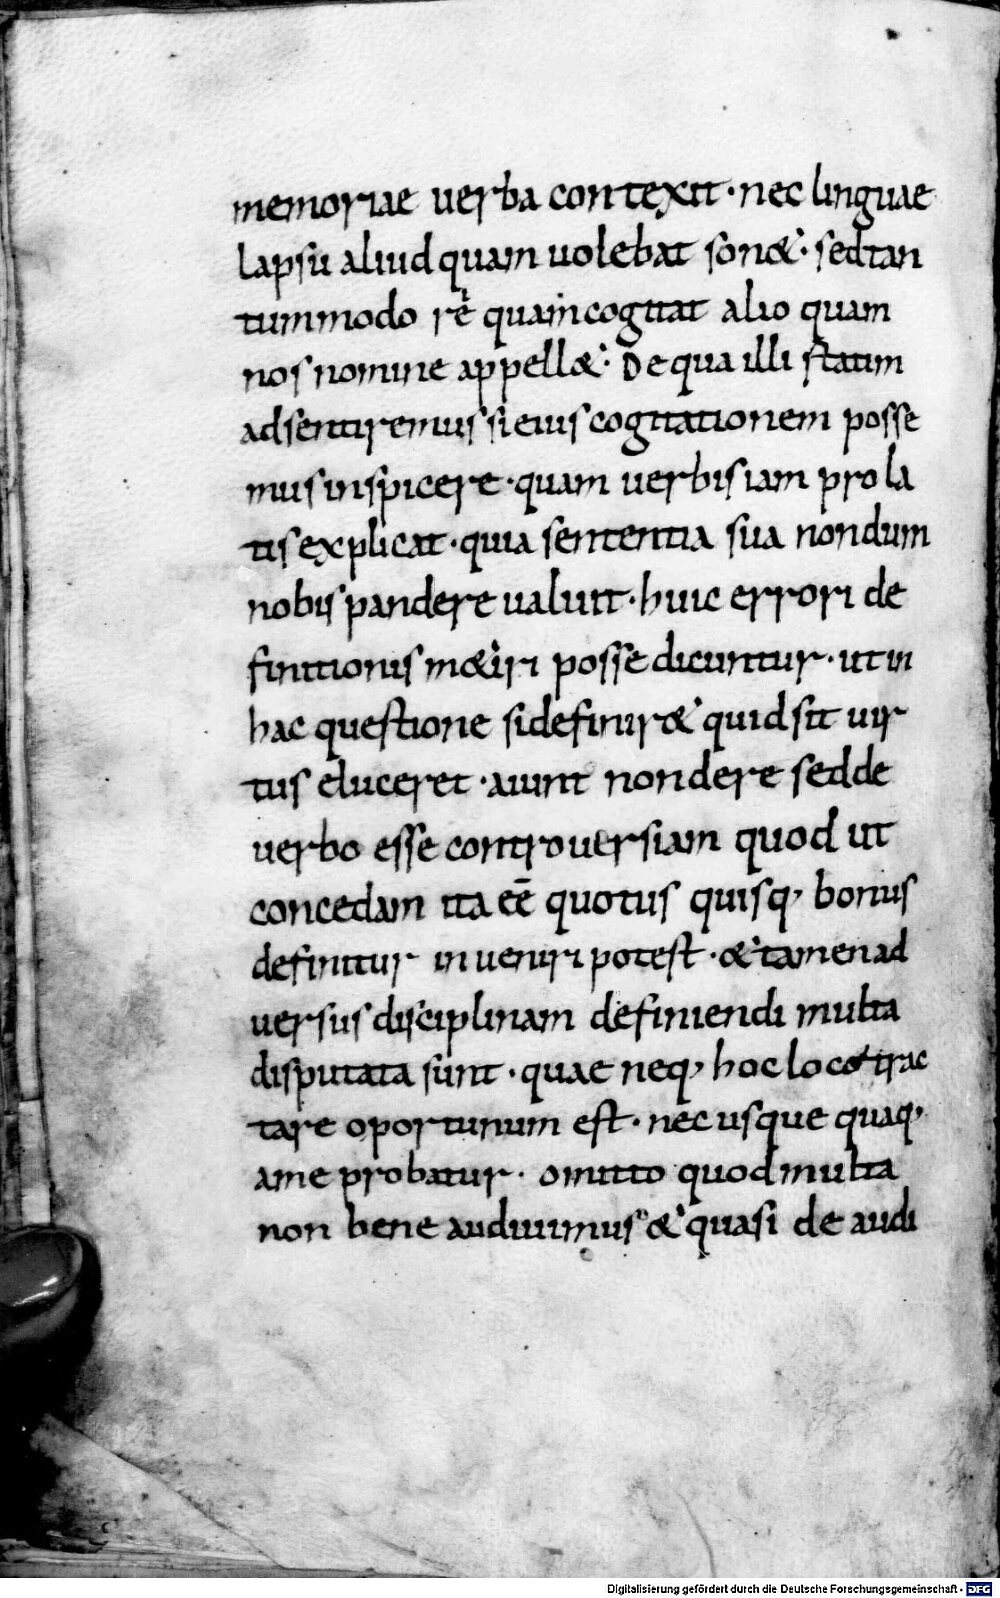 memoriae uerba contexit · nec linguae
lapsu aliud quam uolebat son&· sed tan
tummodo rē quam cogitat alio quam
nos nomine appell&· De qua illi statim
adsentiremus si eius cogitationem posse
mus inspicere · quam uerbis iam prola
tis explicat · quia sententia sua nondum
nobis pandere ualuit · huic errori de
finitionis m&iri posse dicuntur · ut in
hac questione si definir& quid sit uir
tus eluceret · aiunt non de re sed de
uerbo esse controuersiam quod ut
concedam ita eē quotus quisq, bonus
definitur inueniri potest · & tamen ad
uersus disciplinam definiendi multa
disputata sunt · quae neq, hoc loco trac
tare oportunum est · nec usque quaq,
a me probatur · omitto quod multa
non bene audiuimus & quasi de audi
Digitalisierung gefördert durch die Deutsche Forschungsgemeinschaft - DFG